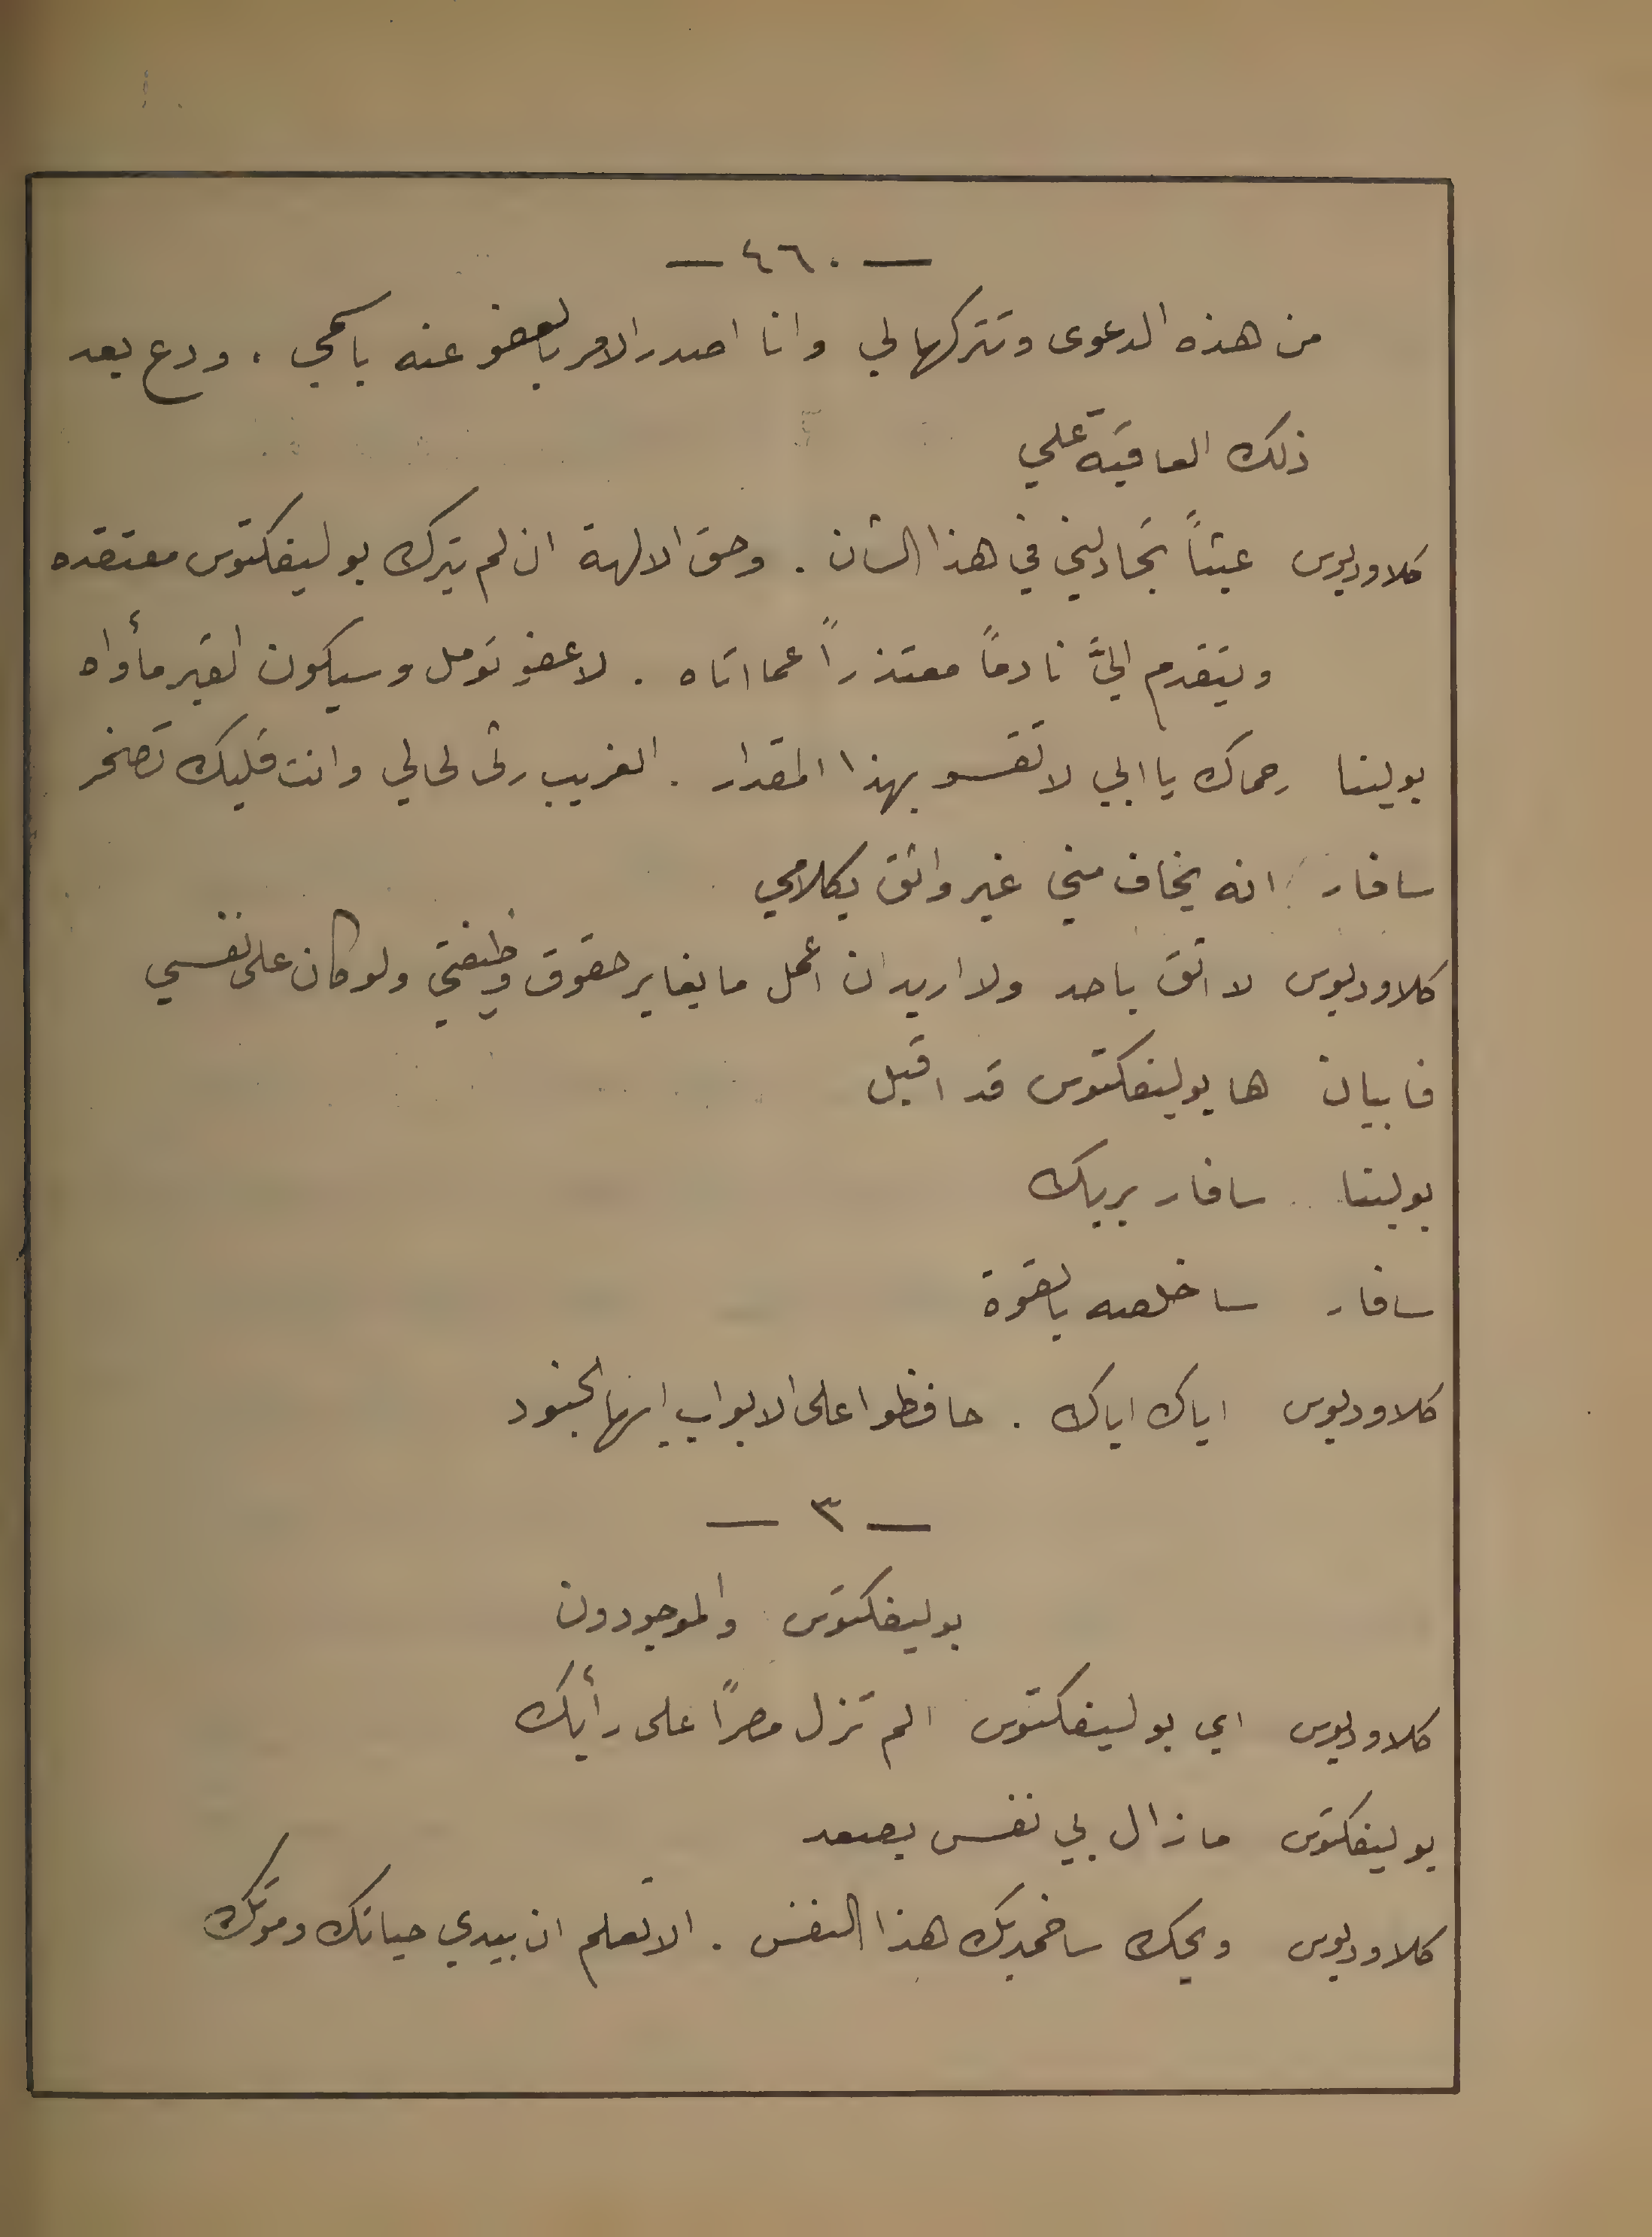 — ٤٦٠ —
من هذه الدعوى وتتركها لي وانا اصدر الامر بالعفو عنه باسمي . ودع بعد
ذلك العاقبة علي
كلاوديوس عبثاً تجادليني في هذا الشان . وحق الالهة ان لم يترك بوليفكتوس معتقده
ويتقدم اليَّ نادماً معتذراً عما اتاه . لا عفو نومل وسيكون القبر مأواه
بولينا رحماك يا ابي لا تقسو بهذا المقدار . الغريب رثى لحالي وانت قلبك تصخر
سافار انه يخاف مني غير واثق بكلامي
كلاوديوس لا اثق باحد ولا اريد ان اعمل ما يغاير حقوق وظيفتي ولو كان على نفسي
فابيان ها بوليفكتوس قد اقبل
بولينا سافار بربك
سافار ساخلصه بالقوة
كلاوديوس اياك اياك . حافظوا على الابواب ايها الجنود
— ٣ —
بوليفكتوس والموجودون
كلاوديوس اي بوليفكتوس الم تزل مصرًا على رأيك
بوليفكتوس ما زال بي نفس يصعد
كلاوديوس ويحك ساخمد بك هذا النفس . الا تعلم ان بيدي حياتك وموتك